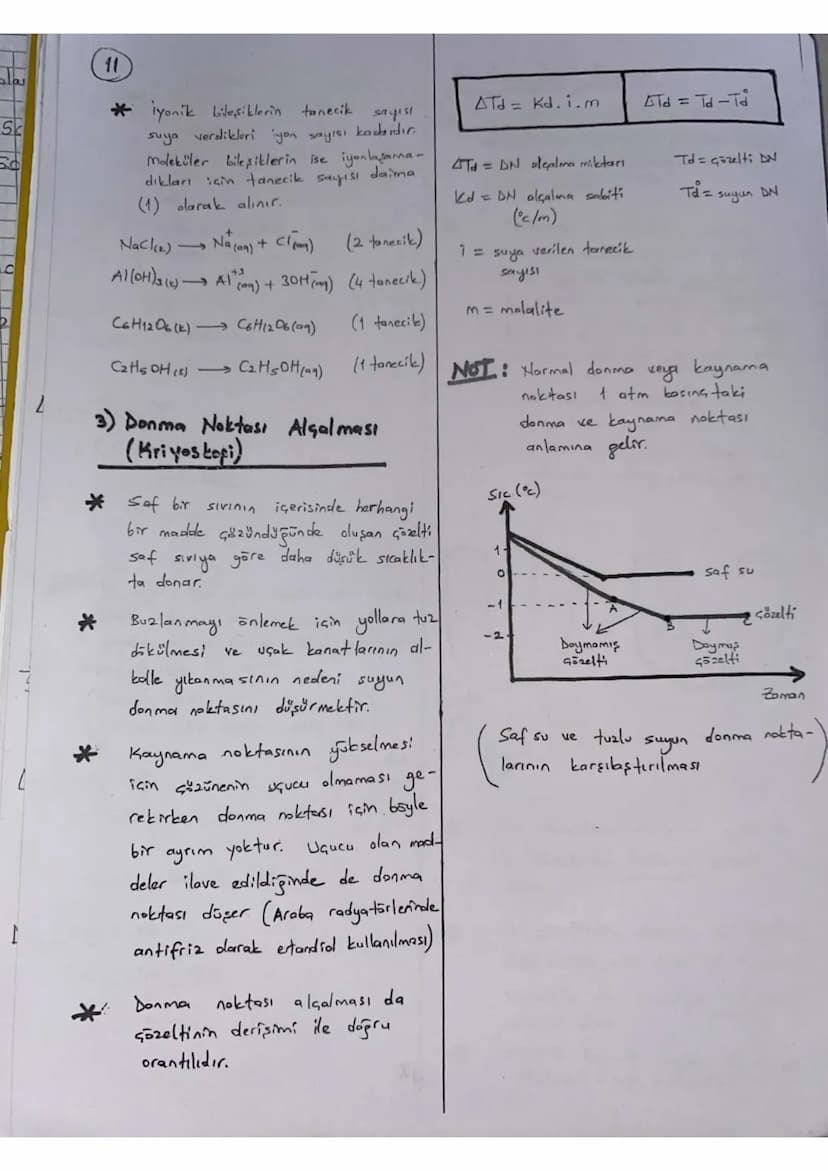 11
* iyonik bileşiklerin tanecik sayısı
suya verdikleri iyon sayısı kadardır.
Moleküler bileşiklerin ise iyonlaşama-
dıkları için tanecik sayısı daima
(1) olarak alınır.
NaCl(k) → Na⁺(aq) + Cl⁻(aq) (2 tanecik)
Al(OH)3(k) → Al⁺³(aq) + 3OH⁻(aq) (4 tanecik)
C6H12O6(k) → C6H12O6(aq) (1 tanecik)
C2H5OH(s) → C2H5OH(aq) (1 tanecik)
3) Donma Noktası Alçalması
(Kriyoskopi)
* Saf bir sıvının içerisinde herhangi
bir madde çözündüğünde oluşan çözelti
saf sıvıya göre daha düşük sıcaklık-
ta donar.
* Buzlanmayı önlemek için yollara tuz
dökülmesi ve uçak kanatlarının al-
kolle yıkanmasının nedeni suyun
donma noktasını düşürmektir.
* Kaynama noktasının yükselmesi
için çözünenin uçucu olmaması ge-
rekirken donma noktası için böyle
bir ayrım yoktur. Uçucu olan mad-
deler ilave edildiğinde de donma
noktası düşer (Araba radyatörlerinde
antifriz olarak etandiol kullanılması)
* Donma noktası alçalması da
çözeltinin derişimi ile doğru
orantılıdır.
ΔTd = Kd . i . m
ΔTd = Td – Td°
ΔTd = DN alçalma miktarı Td = çözelti DN
Kd = DN alçalma sabiti Td° = suyun DN
(°c/m)
i = suya verilen tanecik
sayısı
m = molalite
NOT : Normal donma veya kaynama
noktası 1 atm basınçtaki
donma ve kaynama noktası
anlamına gelir.
Sıc (°c)
1
0
saf su
-1
A
B
C
çözelti
-2
Doymamış
çözelti
Doymuş
çözelti
Zaman
(Saf su ve tuzlu suyun donma nokta-
larının karşılaştırılması)